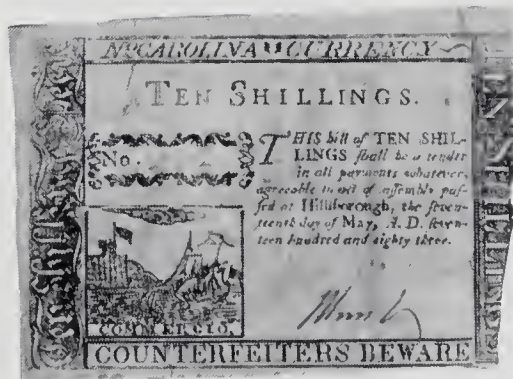 No CAROLINA CURRENCY
TEN SHILLINGS.
No.
THIS bill of TEN SHIL-
LINGS ſhall be a tender
in all payments whatever,
agreeable to act of aſſembly paſ-
ſed at Hillſborough, the ſeven-
teenth day of May, A. D. ſeven-
teen hundred and eighty three.
COUNTERFEITERS BEWARE